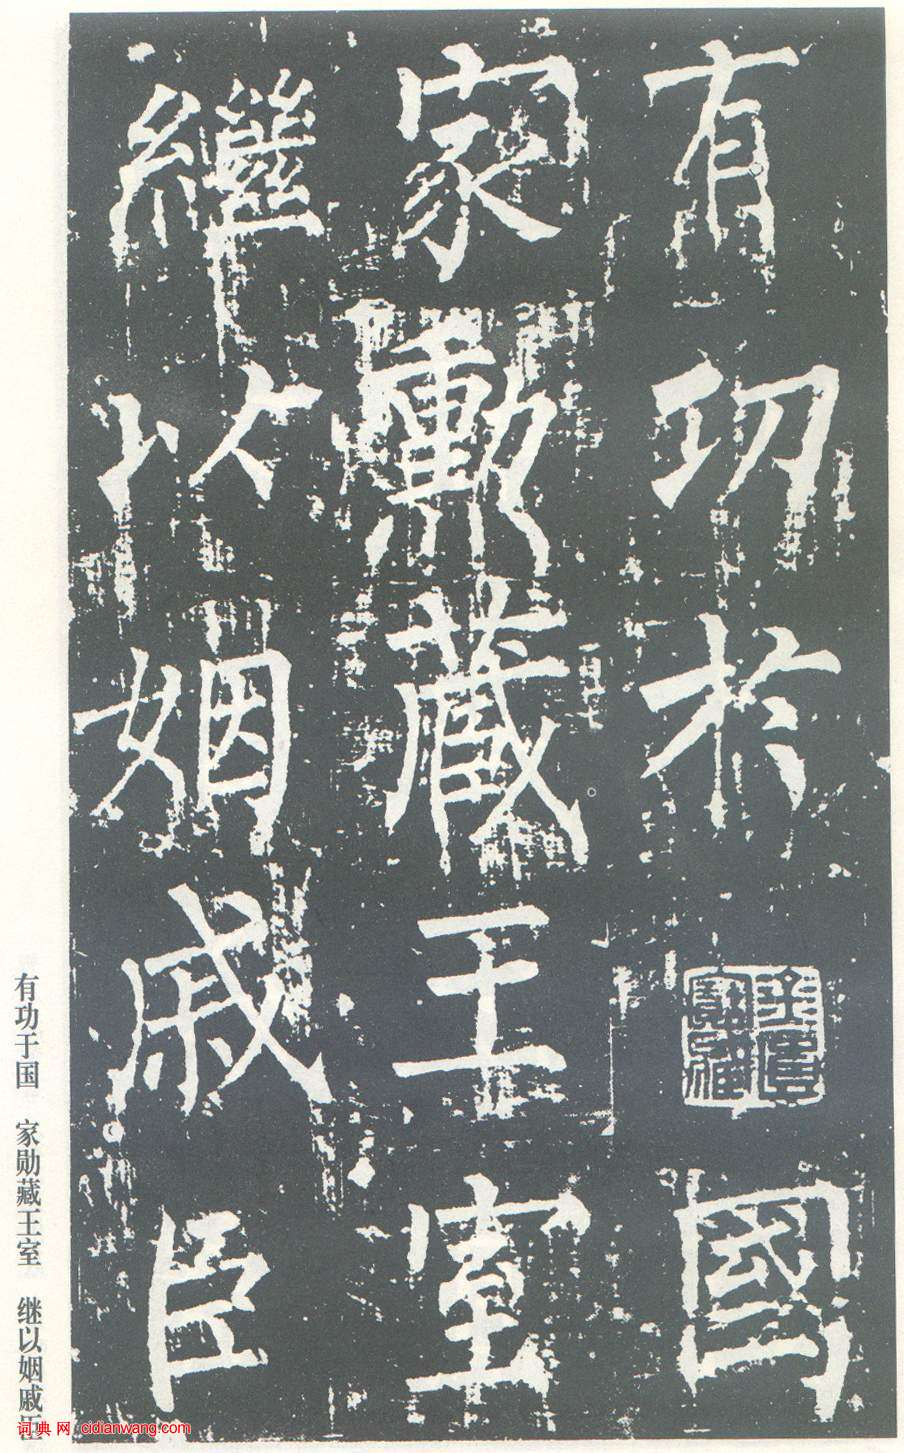 有功於國
家勳藏王室
繼以姻戚臣
有功于国 家勋藏王室 继以姻戚臣
词典网 cidianwang.com